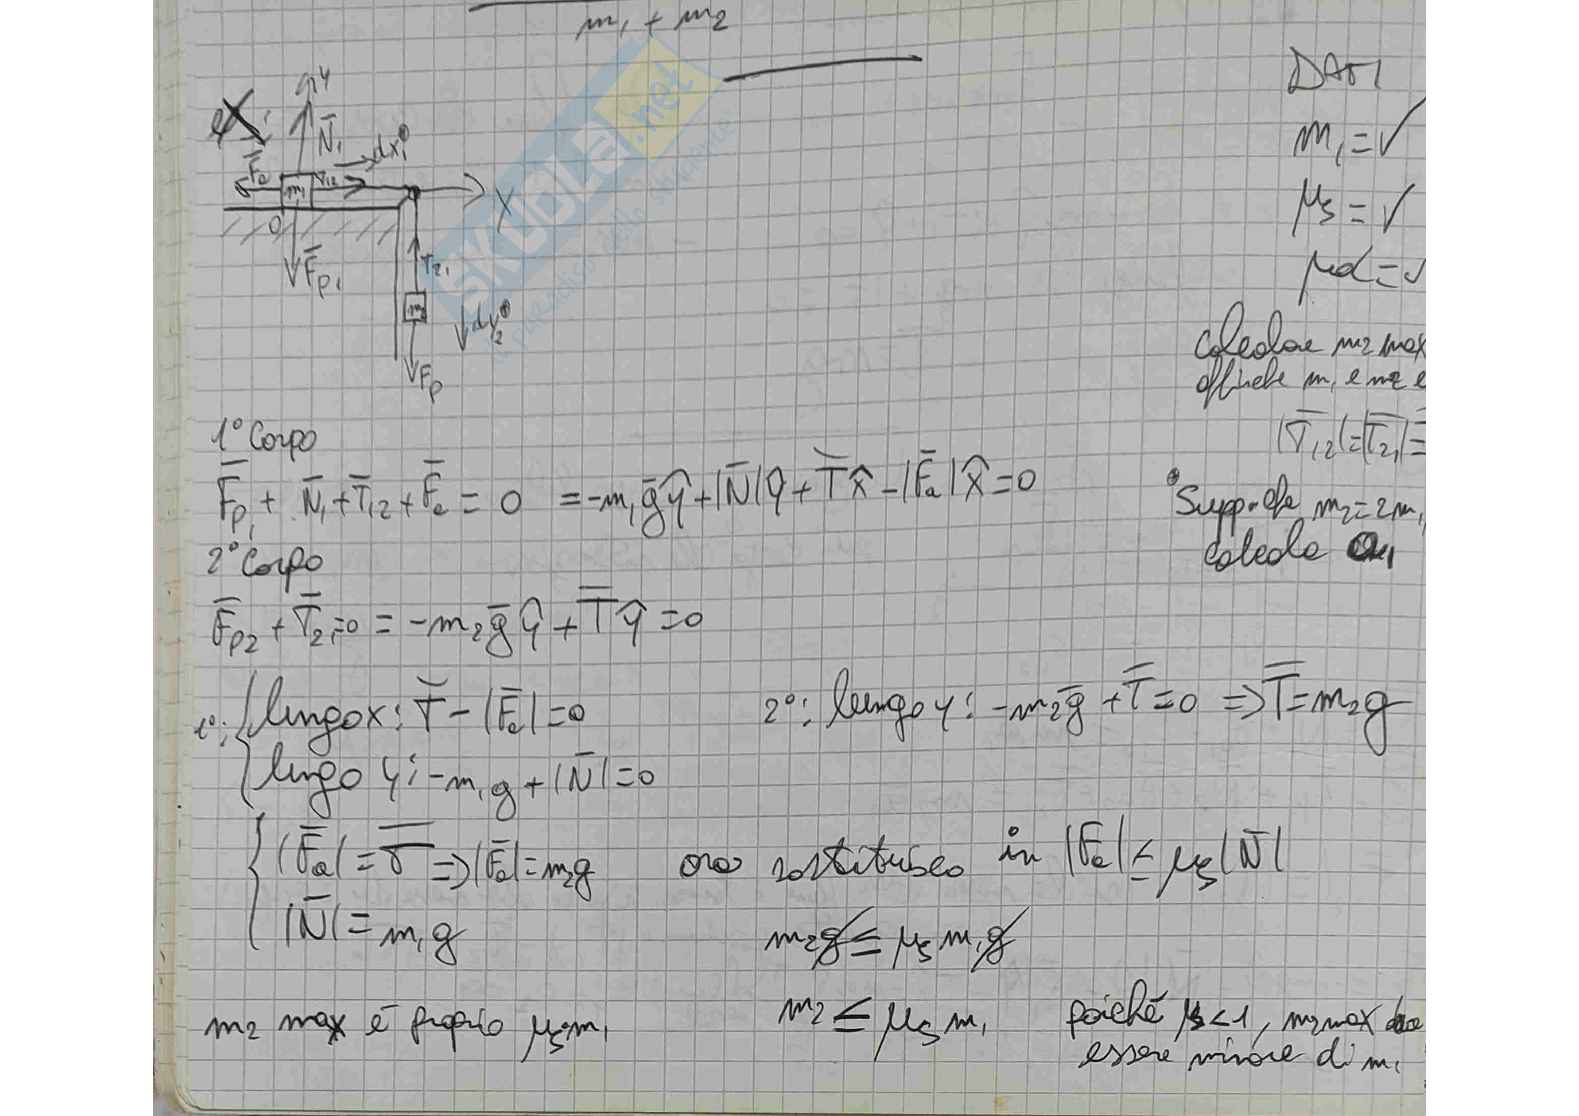 m₁ + m₂
ex:
y
N̄₁
dx₁
F̄a
m₁
T₁₂
X
O
F̄p₁
T₂₁
m₂
dy₂
Fp
SKUOLA.net
DATI
m₁ = ✓
μs = ✓
μd = ✓
calcolare m₂ max
affinché m₁ e m₂ e
|T̄₁₂| = |T̄₂₁| =
Supp. che m₂ = 2m₁
calcola a₁
1° Corpo
F̄p₁ + N̄₁ + T̄₁₂ + F̄a = 0 = -m₁ḡŷ + |N̄|ŷ + T̄x̂ - |F̄a|x̂ = 0
2° Corpo
F̄p₂ + T̄₂₁ = 0 = -m₂ḡŷ + T̄ŷ = 0
1°: { lungo x: T̄ - |F̄a| = 0
lungo y: -m₁g + |N̄| = 0
2°: lungo y: -m₂ḡ + T̄ = 0 => T̄ = m₂g
{ |F̄a| = T̄ => |F̄a| = m₂g
|N̄| = m₁g
ora sostituisco in |F̄a| ≤ μs|N̄|
m₂g ≤ μs m₁g
m₂ ≤ μs m₁
m₂ max è proprio μs·m₁
poiché μs < 1, m₂ max deve
essere minore di m₁